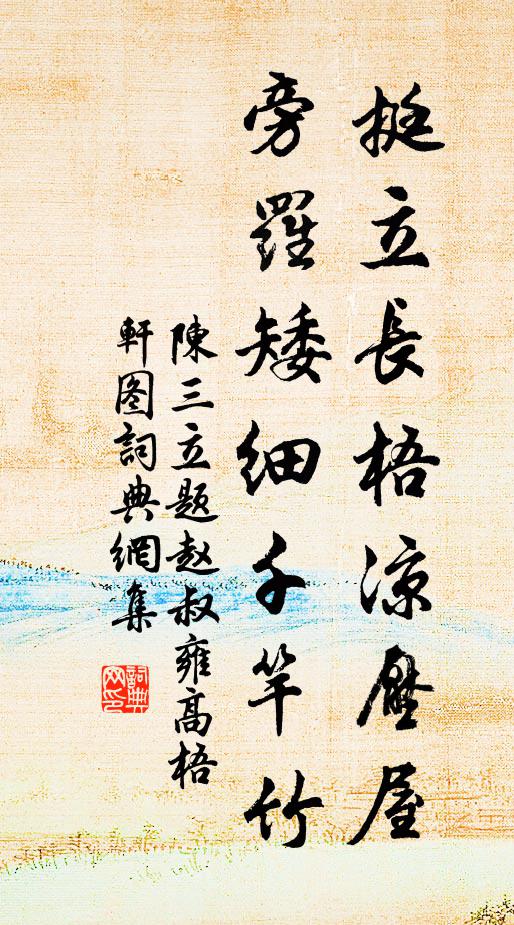 挺立長梧涼壓屋
旁羅矮細千竿竹
陳三立題赵叔雍高梧
軒图詞典網集
詞典网印